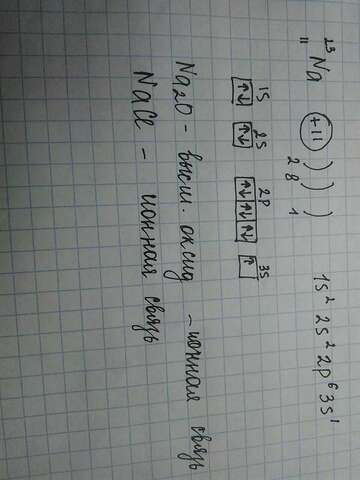 ²³₁₁Na (+11) ) ) ) 1s² 2s² 2p⁶ 3s¹
2 8 1
1S 2S 2P 3S
↑↓ ↑↓ ↑↓ ↑↓ ↑↓ ↑
Na2O - высш. оксид - ионная связь
NaCl - ионная связь